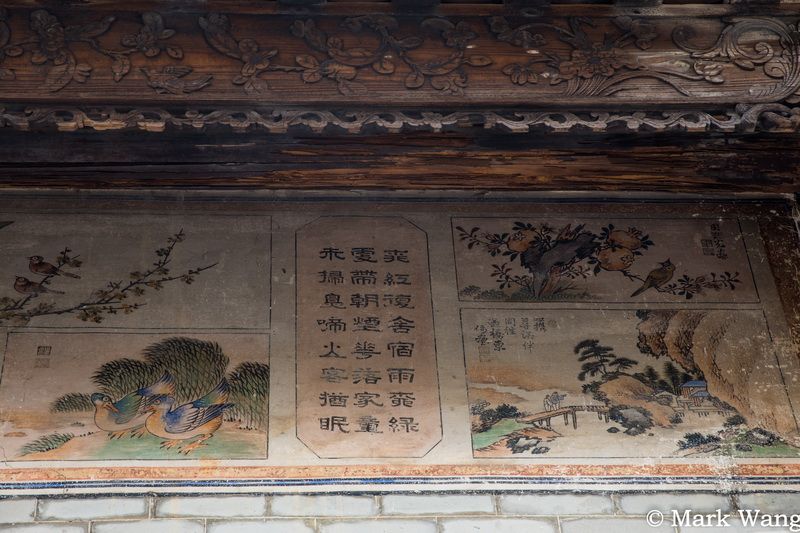 桃紅復含宿雨柳綠
更帶朝煙花落家童
未掃鳥啼山客猶眠
© Mark Wang